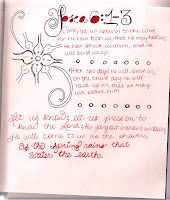 Hosea 6:1-3
Come, let us return to the Lord;
For He has torn us, that He may heal us;
He has struck us down, and He
will bind us up.
After two days He will revive us;
on the third day He will
raise us up, that we may
live before Him
Let us know; let us press on to
know the Lord; His going out is sure as the dawn;
He will come to us as the showers,
as the spring rains that
water the earth.